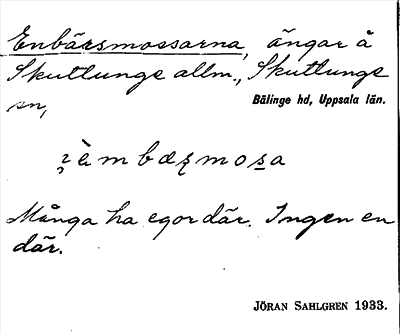 Enbärsmossarna, ängar å
Skuttunge allm., Skuttunge
sn,
Bälinge hd, Uppsala län.
Många ha egor där. Ingen en
där.
JÖRAN SAHLGREN 1933.